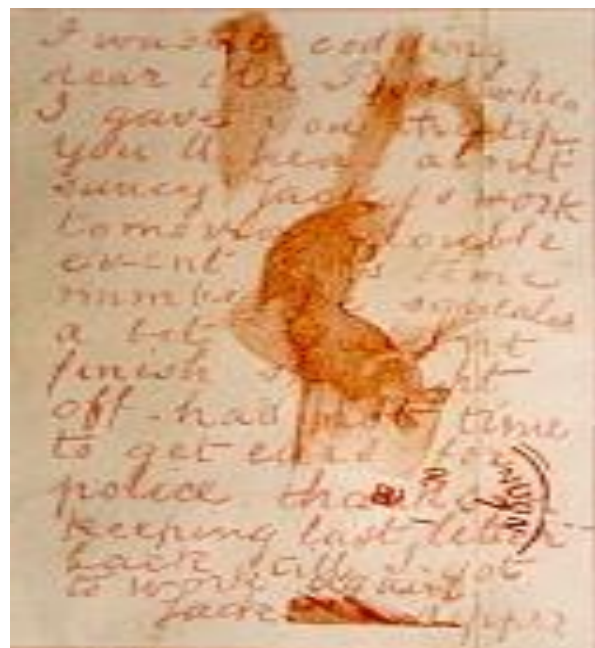 I codding
dear old when
I gave you the tip
you'll hear about
saucy Jacky's work
tomorrow double
event this time
number squealed
a bit
finish
off. had not time
to get ears for
police thanks for
keeping last letter
back till I got
to work again
Jack Ripper